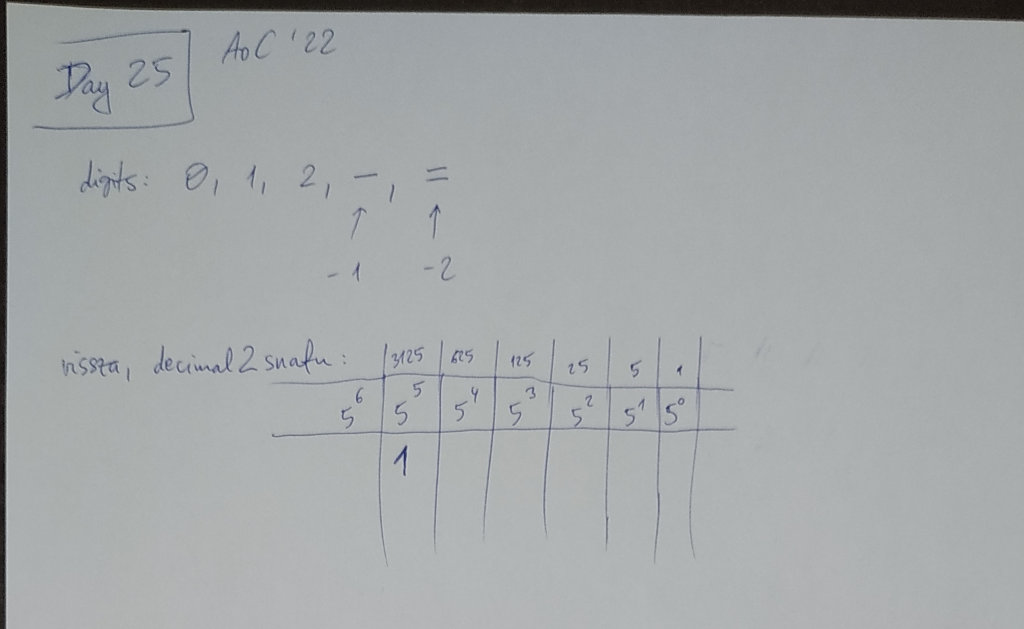 Day 25 AoC '22
digits: 0, 1, 2, -, =
↑ ↑
-1 -2
vissza, decimal2snafu: 3125 625 125 25 5 1
5⁶ 5⁵ 5⁴ 5³ 5² 5¹ 5⁰
1